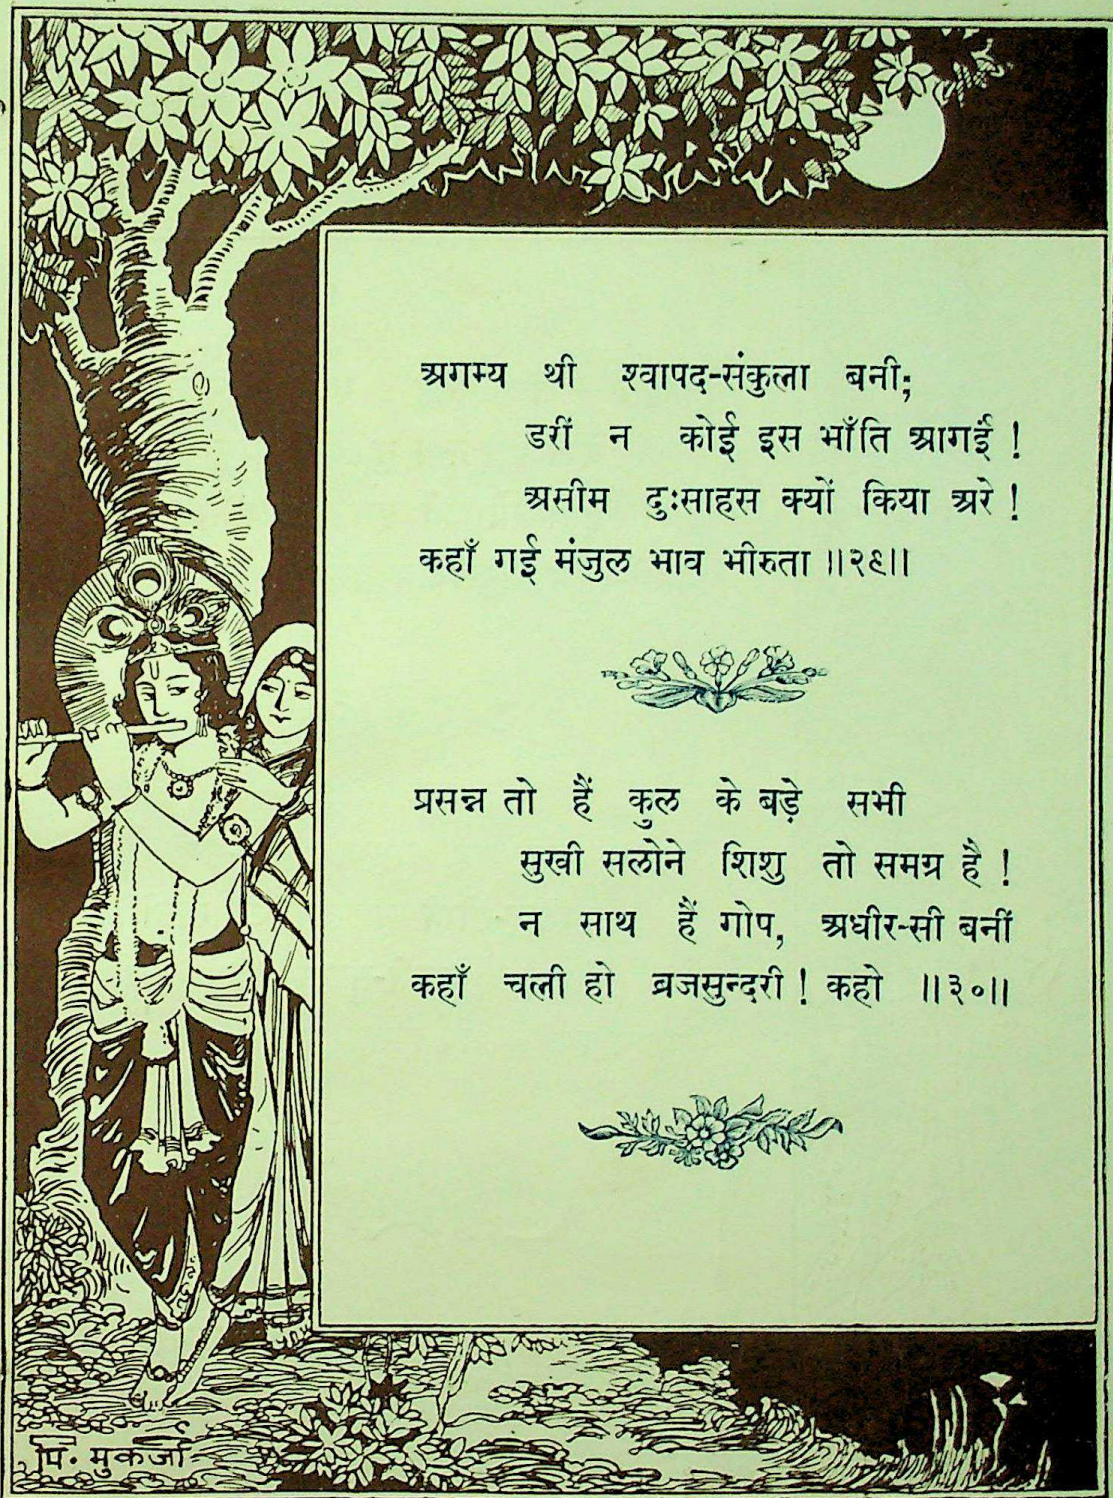 अगम्य थी श्वापद-संकुला बनी;
डरीं न कोई इस भाँति आगईं !
असीम दुःसाहस क्यों किया अरे !
कहाँ गई मंजुल भाव भीरुता ॥२९॥
प्रसन्न तो हैं कुल के बड़े सभी
सुखी सलोने शिशु तो समग्र है !
न साथ हैं गोप, अधीर-सी बनीं
कहाँ चली हो ब्रजसुन्दरी ! कहो ॥३०॥
पि. मुकर्जी